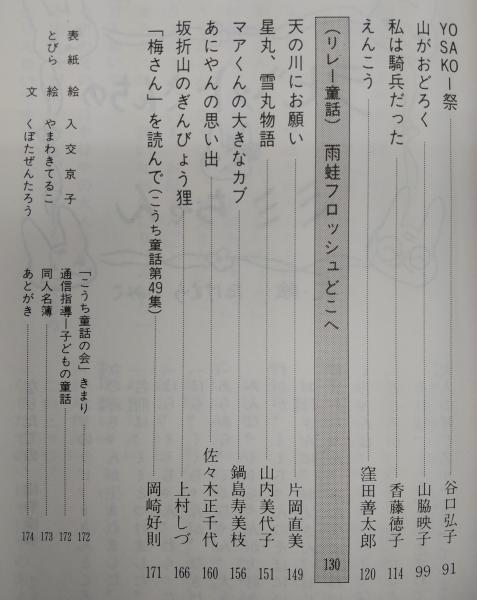 YOSAKOI祭 谷口弘子 91
山がおどろく 山脇映子 99
私は騎兵だった 香藤徳子 114
えんこう 窪田善太郎 120
（リレー童話） 雨蛙フロッシュどこへ 130
天の川にお願い 片岡直美 149
星丸、雪丸物語 山内美代子 151
マアくんの大きなカブ 鍋島寿美枝 156
あにやんの思い出 佐々木正千代 160
坂折山のぎんびょう狸 上村しづ 166
「梅さん」を読んで（こうち童話第49集） 岡崎好則 171
「こうち童話の会」きまり 172
通信指導―子どもの童話 172
同人名簿 173
あとがき 174
表紙絵 入交京子
とびら 絵 やまわきてるこ
文 くぼたぜんたろう